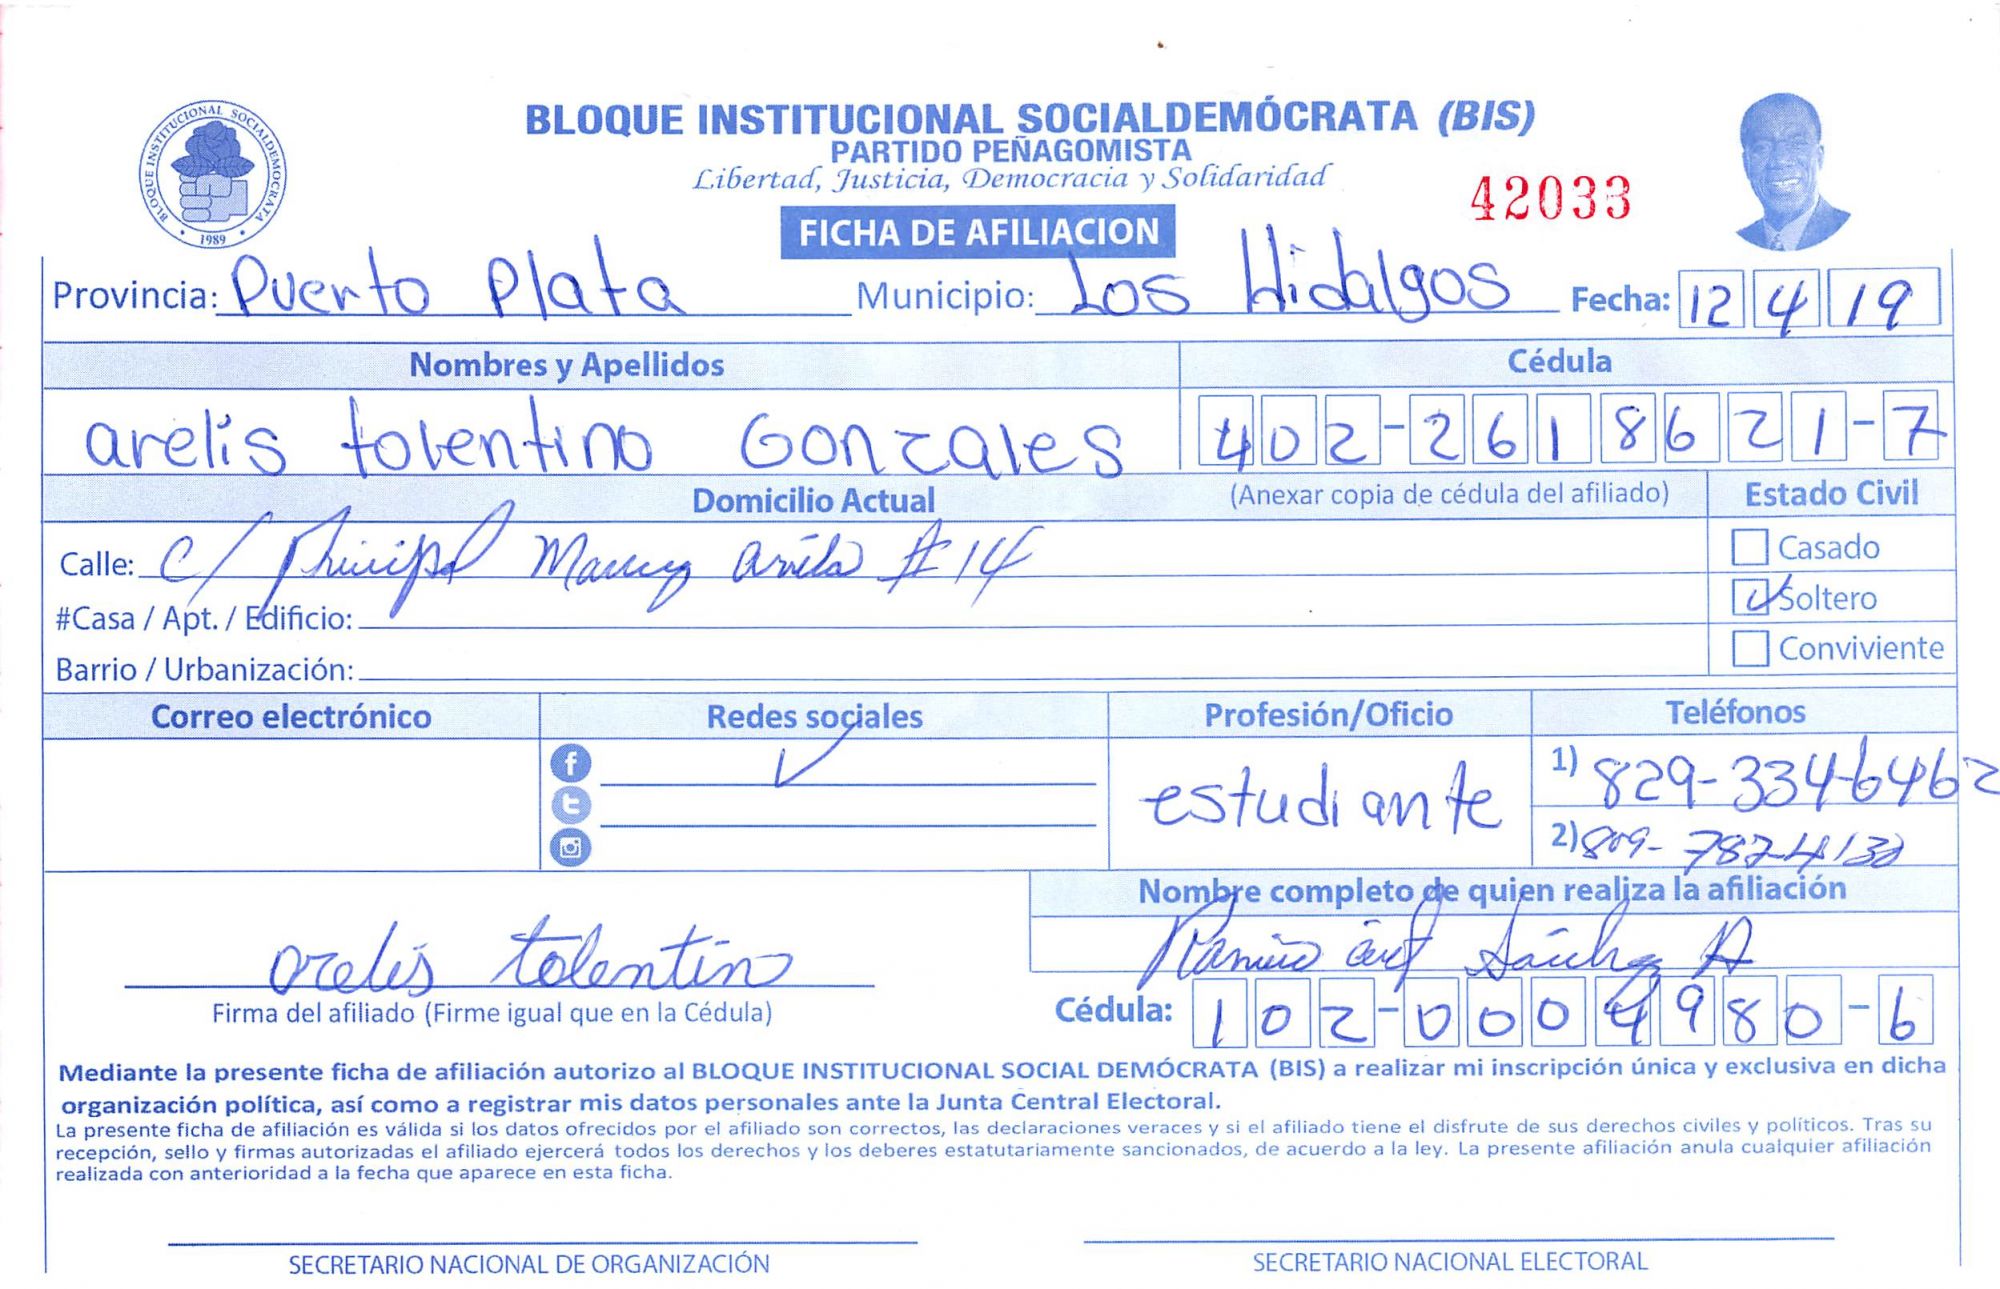 BLOQUE INSTITUCIONAL SOCIALDEMOCRATA
1989
BLOQUE INSTITUCIONAL SOCIALDEMÓCRATA (BIS)
PARTIDO PEÑAGOMISTA
Libertad, Justicia, Democracia y Solidaridad
42033
FICHA DE AFILIACION
Provincia: Puerto Plata Municipio: Los Hidalgos Fecha: 12 4 19
Nombres y Apellidos Cédula
arelis tolentino Gonzales 402-2618621-7
Domicilio Actual (Anexar copia de cédula del afiliado) Estado Civil
Calle: c/ Principal #14 Casado
#Casa / Apt. / Edificio: Soltero
Barrio / Urbanización: Conviviente
Correo electrónico Redes sociales Profesión/Oficio Teléfonos
estudiante 1) 829-334-6462
2) 809-787-4132
Nombre completo de quien realiza la afiliación
arelis tolentino Sánchez A
Firma del afiliado (Firme igual que en la Cédula) Cédula: 102-0004980-6
Mediante la presente ficha de afiliación autorizo al BLOQUE INSTITUCIONAL SOCIAL DEMÓCRATA (BIS) a realizar mi inscripción única y exclusiva en dicha
organización política, así como a registrar mis datos personales ante la Junta Central Electoral.
La presente ficha de afiliación es válida si los datos ofrecidos por el afiliado son correctos, las declaraciones veraces y si el afiliado tiene el disfrute de sus derechos civiles y políticos. Tras su
recepción, sello y firmas autorizadas el afiliado ejercerá todos los derechos y los deberes estatutariamente sancionados, de acuerdo a la ley. La presente afiliación anula cualquier afiliación
realizada con anterioridad a la fecha que aparece en esta ficha.
SECRETARIO NACIONAL DE ORGANIZACIÓN SECRETARIO NACIONAL ELECTORAL